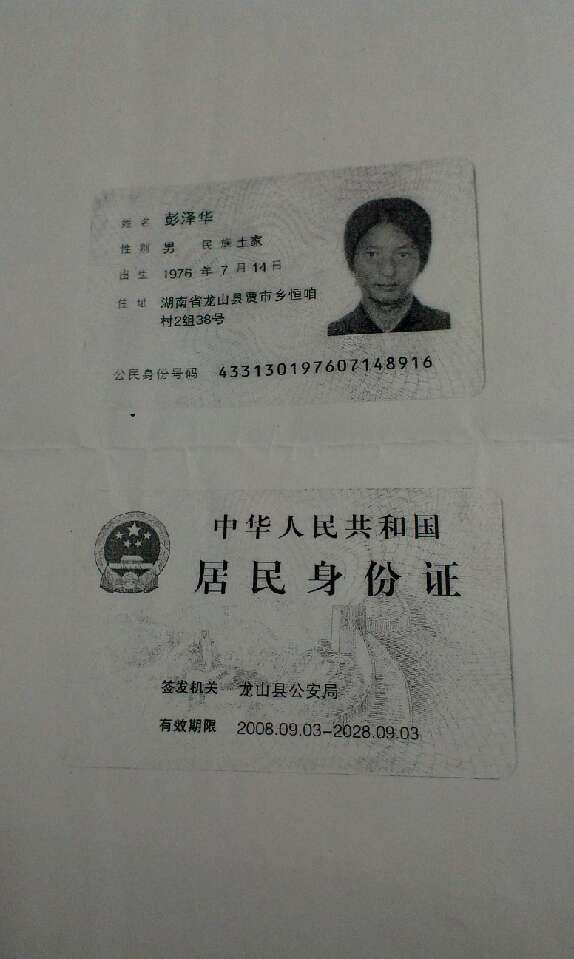 姓名 彭泽华
性别 男 民族 土家
出生 1976 年 7 月 14 日
住址 湖南省龙山县贾市乡恒咱
村2组38号
公民身份号码 433130197607148916
中华人民共和国
居民身份证
签发机关 龙山县公安局
有效期限 2008.09.03-2028.09.03